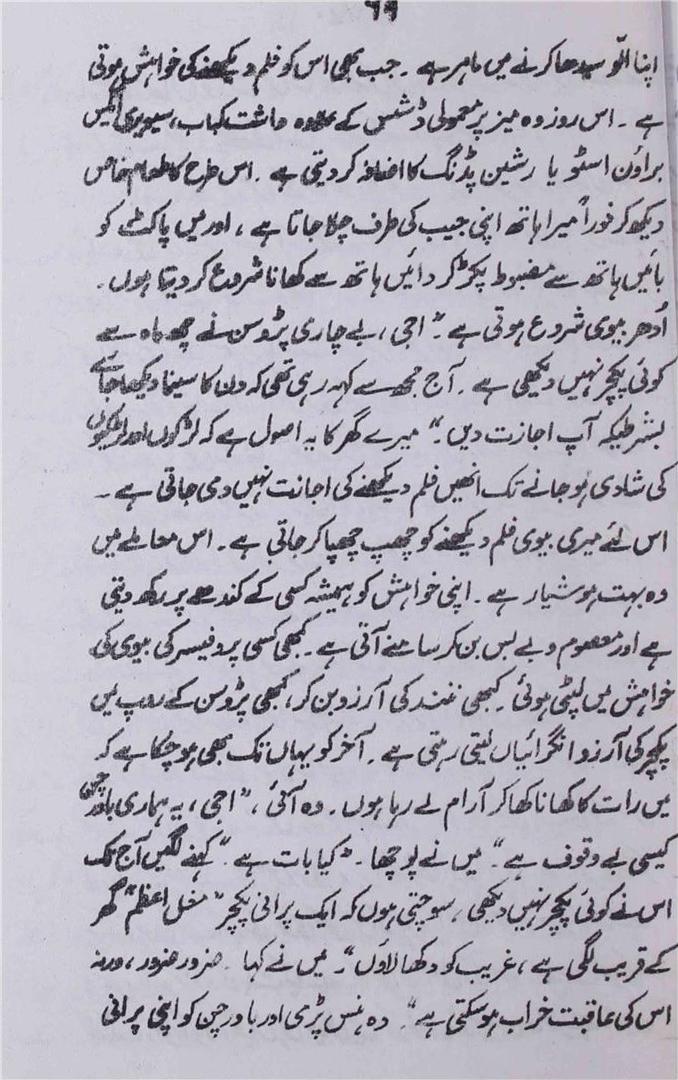 ۶۹
اپنا الّو سیدھا کرنے میں ماہر ہے ۔ جب بھی اس کو فلم دیکھنے کی خواہش ہوتی
ہے ۔ اس روز وہ میز پر معمولی ڈشس کے علاوہ حاشت کباب، سیویری ائیس
براؤن اسٹو یا رشین پڈنگ کا اضافہ کر دیتی ہے ۔ اس طرح کا طعام خاص
دیکھ کر فوراً میرا ہاتھ اپنی جیب کی طرف چلا جاتا ہے ، اور میں پاکٹ کو
بائیں ہاتھ سے مضبوط پکڑ کر دائیں ہاتھ سے کھانا شروع کر دیتا ہوں ۔
اُدھر بیوی شروع ہوتی ہے ۔ " اجی ، بے چاری پڑوسن نے چھ ماہ سے
کوئی پکچر نہیں دیکھی ہے ۔ آج مجھ سے کہہ رہی تھی کہ دن کا سینما دیکھا جائے
بشرطیکہ آپ اجازت دیں ۔" میرے گھر کا یہ اصول ہے کہ لڑکوں اور لڑکیوں
کی شادی ہو جانے تک انھیں فلم دیکھنے کی اجازت نہیں دی جاتی ہے ۔
اس لئے میری بیوی فلم دیکھنے کو چھپ چھپا کر جاتی ہے ۔ اس معاملے میں
وہ بہت ہوشیار ہے ۔ اپنی خواہش کو ہمیشہ کسی کے کندھے پر رکھ دیتی
ہے اور معصوم و بے بس بن کر سامنے آتی ہے ۔ کبھی کسی پروفیسر کی بیوی کی
خواہش میں لپٹی ہوئی ۔ کبھی نند کی آرزو بن کر، کبھی پڑوسن کے روپ میں
پکچر کی آرزو انگڑائیاں لیتی رہتی ہے ۔ آخر کو یہاں تک بھی ہو چکا ہے کہ
میں رات کا کھانا کھا کر آرام لے رہا ہوں ۔ وہ آئی ، " اجی ، یہ ہماری باورچن
کیسی بے وقوف ہے " ۔ میں نے پوچھا ۔ " کیا بات ہے ۔" کہنے لگیں آج تک
اس نے کوئی پکچر نہیں دیکھی ، سوچتی ہوں کہ ایک پرانی پکچر " مغل اعظم " گھر
کے قریب لگی ہے ، غریب کو دکھا لاؤں " ۔ میں نے کہا ۔ ضرور ضرور ، ورنہ
اس کی عاقبت خراب ہو سکتی ہے " ۔ وہ ہنس پڑی اور باورچن کو اپنی پرانی